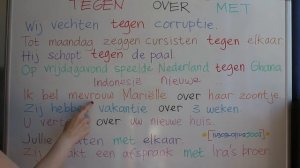 TEGEN OVER MET
Wij vechten tegen corruptie.
Tot maandag zeggen cursisten tegen elkaar.
Hij schopt tegen de paal.
Op vrijdagavond speelde Nederland tegen Ghana.
Indonesië nieuwe
Ik bel mevrouw Mariëlle over haar zoontje.
Zij hebben vakantie over 3 weken.
U over uw nieuwe huis.
Jullie praten met elkaar.
Zij een afspraak met Ira's broer.